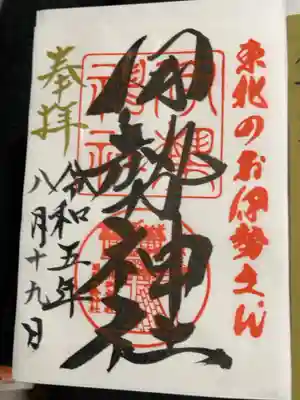 東北のお伊勢さん
奉拝
伊勢神社
令和五年
八月十九日